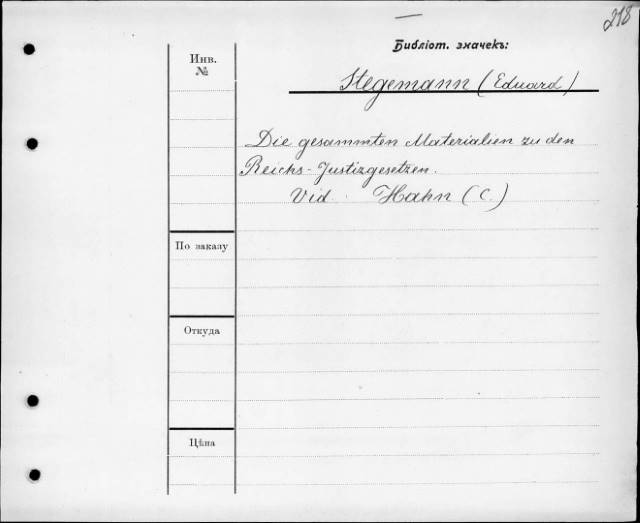 218
Библіот. значекъ:
Инв.
№
Stegemann (Eduard)
Die gesammten Materialien zu den
Reichs-Justizgesetzen.
Vid. Hahn (C.)
По заказу
Откуда
Цѣна